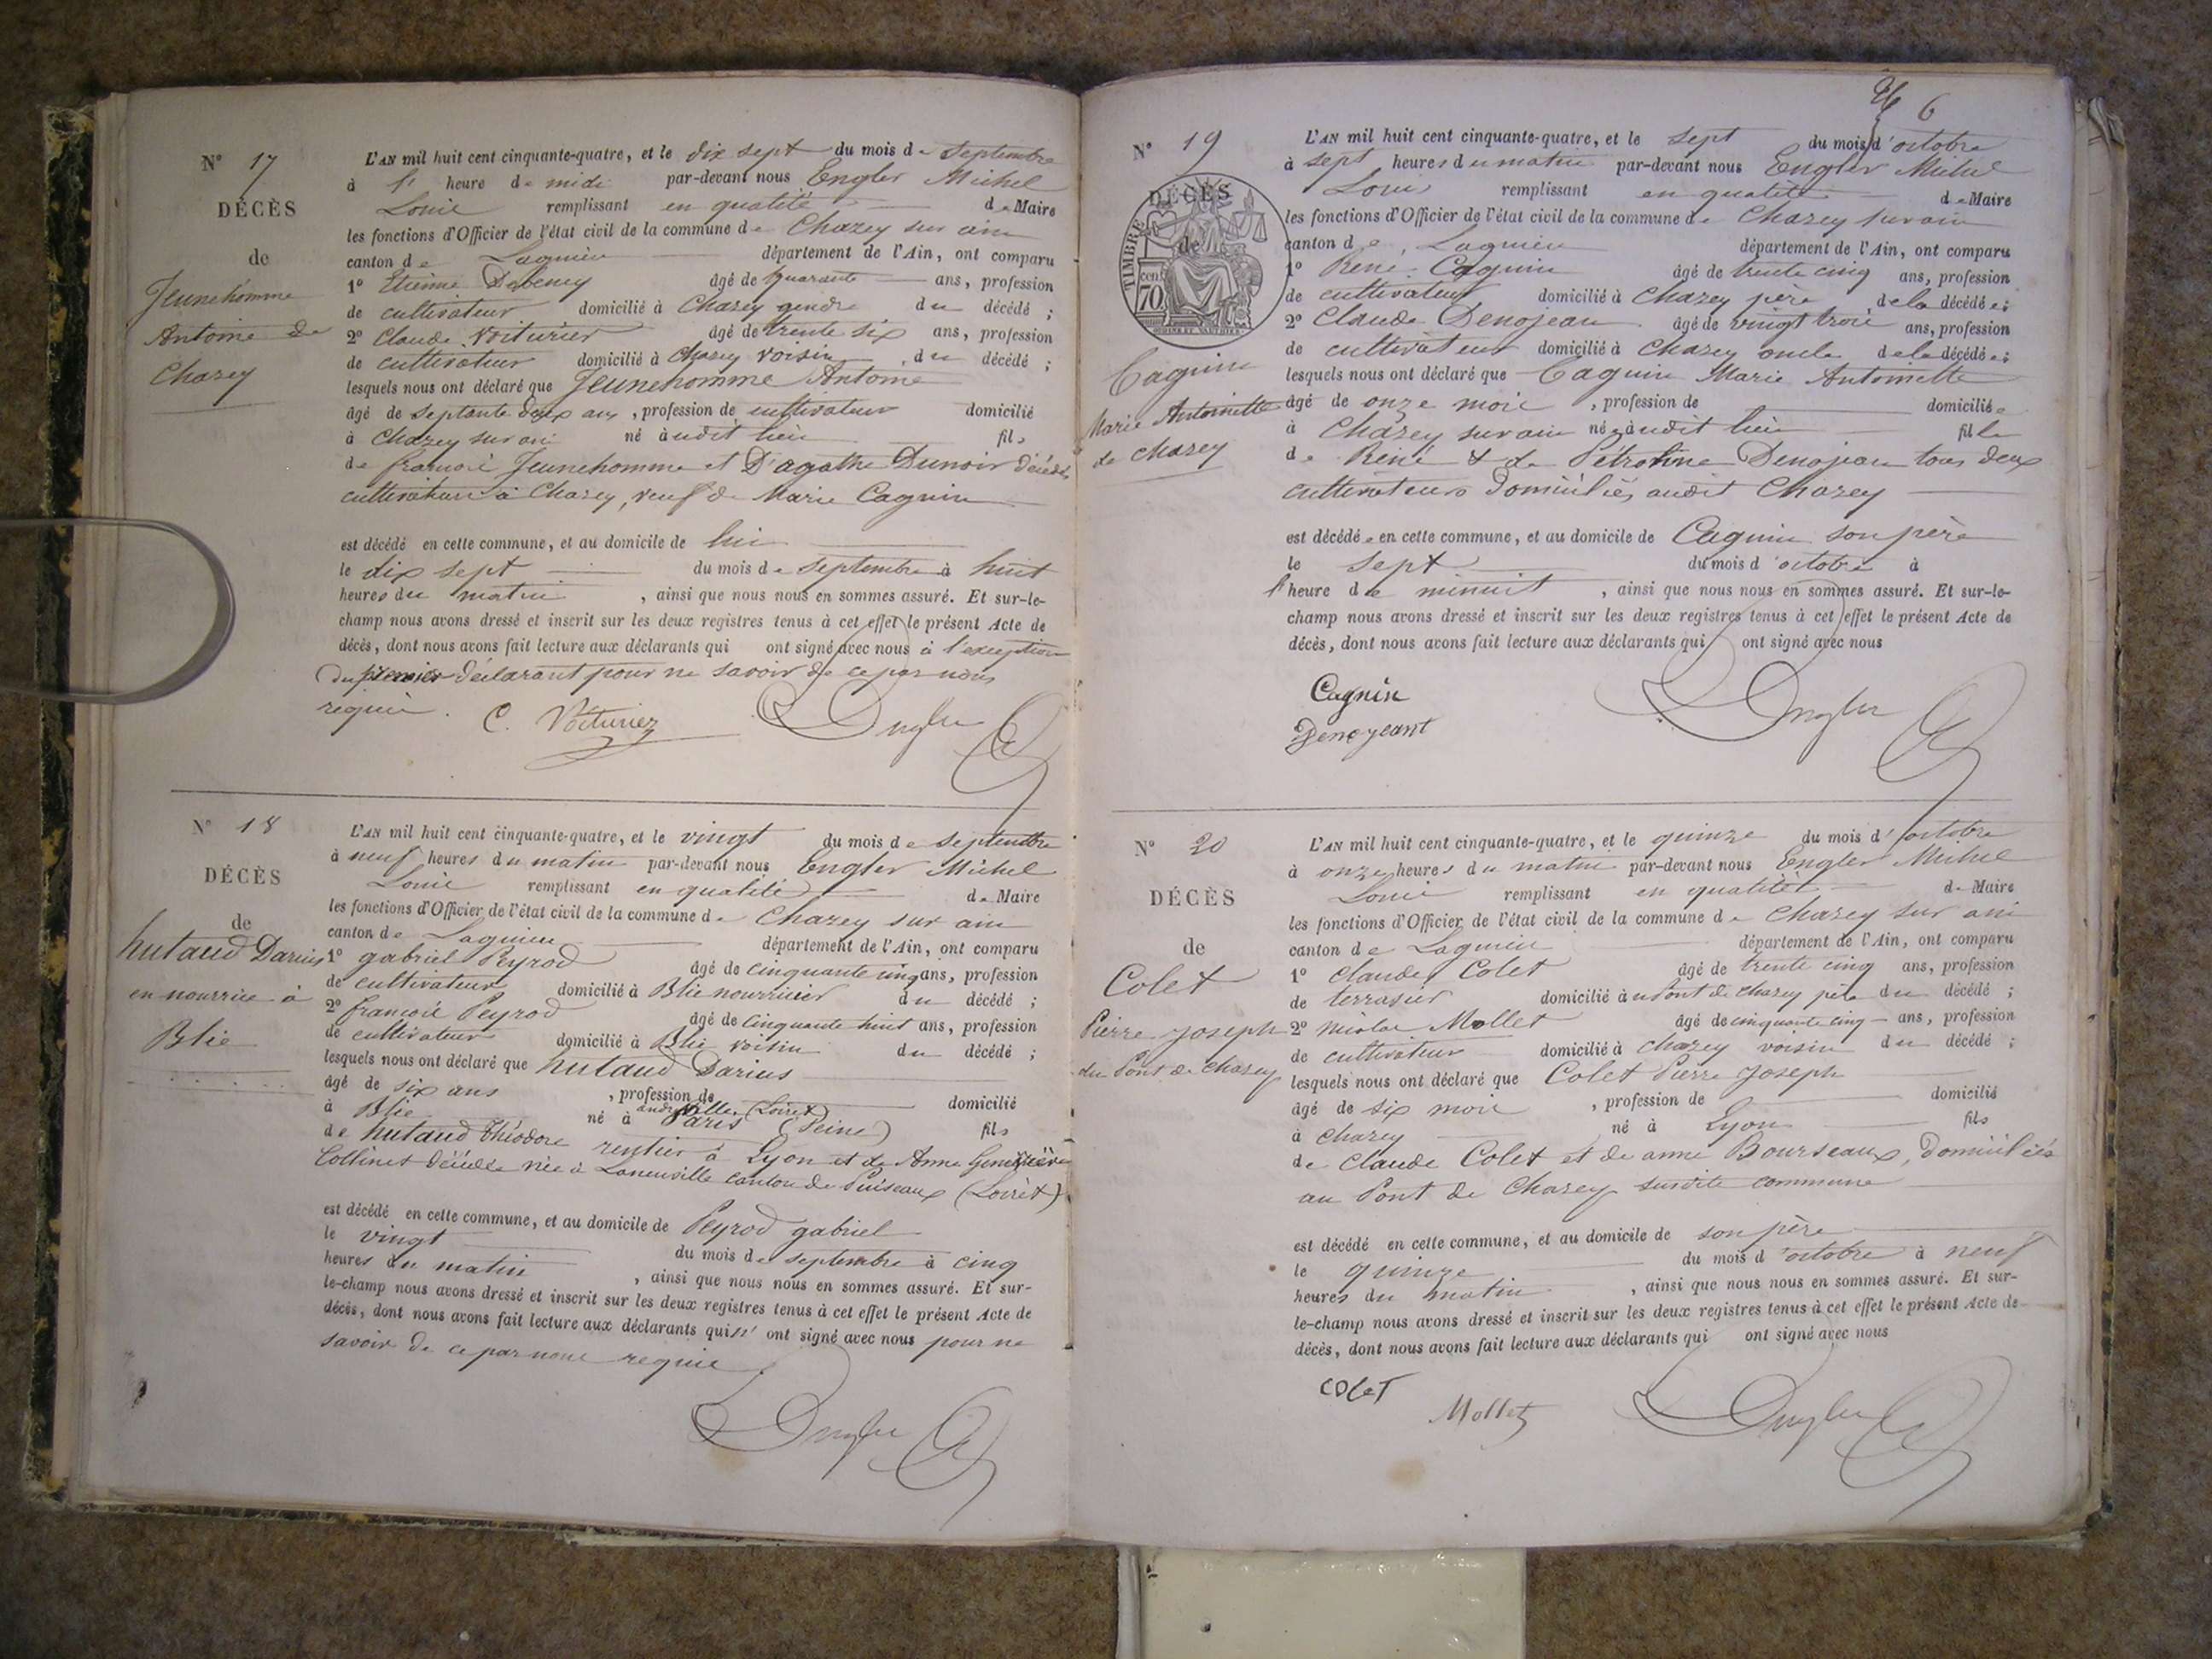 N° 17
DÉCÈS
de
Jeunehomme
Antoine de
Chazey
L'AN mil huit cent cinquante-quatre, et le dix sept du mois de Septembre
à l' heure de midi par-devant nous Engler Michel
Louis remplissant en qualité de Maire
les fonctions d'Officier de l'état civil de la commune de Chazey sur ain
canton de Lagnieu département de l'Ain, ont comparu
1° Etienne Debeney âgé de quarante ans, profession
de cultivateur domicilié à Chazey gendre du décédé ;
2° Claude Voiturier âgé de trente six ans, profession
de cultivateur domicilié à Chazey voisin du décédé ;
lesquels nous ont déclaré que Jeunehomme Antoine
âgé de septante deux ans, profession de cultivateur domicilié
à Chazey sur ain né audit lieu fils
de françois Jeunehomme et D'agathe Dunoir décédés
cultivateurs à Chazey, veuf de Marie Cagnin
est décédé en cette commune, et au domicile de lui
le dix sept du mois de Septembre à huit
heures du matin, ainsi que nous nous en sommes assuré. Et sur-le-
champ nous avons dressé et inscrit sur les deux registres tenus à cet effet le présent Acte de
décès, dont nous avons fait lecture aux déclarants qui ont signé avec nous à l'exception
du premier déclarant pour ne savoir de ce par nous
requis.
C. Voituriez Engler
N° 18
DÉCÈS
de
hutaud Darius
en nourrice à
Blie
L'AN mil huit cent cinquante-quatre, et le vingt du mois de Septembre
à neuf heures du matin par-devant nous Engler Michel
Louis remplissant en qualité de Maire
les fonctions d'Officier de l'état civil de la commune de Chazey sur ain
canton de Lagnieu département de l'Ain, ont comparu
1° gabriel Peyrod âgé de cinquante cinq ans, profession
de cultivateur domicilié à Blie nourricier du décédé ;
2° françois Peyrod âgé de cinquante huit ans, profession
de cultivateur domicilié à Blie voisin du décédé ;
lesquels nous ont déclaré que hutaud Darius
âgé de six ans, profession de domicilié
(Loiret)
à Blie né à Paris (Seine) fils
de hutaud théodore rentier à Lyon et de Anne Geneviève
Collinet décédée née à Laneuville canton de Puiseaux (Loiret)
est décédé en cette commune, et au domicile de Peyrod gabriel
le vingt du mois de septembre à cinq
heures du matin, ainsi que nous nous en sommes assuré. Et sur-
le-champ nous avons dressé et inscrit sur les deux registres tenus à cet effet le présent Acte de
décès, dont nous avons fait lecture aux déclarants qui n' ont signé avec nous pour ne
savoir de ce par nous requis
Engler
6
N° 19
DÉCÈS
de
TIMBRE
cent
70
Cagnin
Marie Antoinette
de Chazey
L'AN mil huit cent cinquante-quatre, et le sept du mois d'octobre
à sept heures du matin par-devant nous Engler Michel
Louis remplissant en qualité de Maire
les fonctions d'Officier de l'état civil de la commune de Chazey sur ain
canton de Lagnieu département de l'Ain, ont comparu
1° René Cagnin âgé de trente cinq ans, profession
de cultivateur domicilié à Chazey père de la décédée ;
2° Claude Denojean âgé de vingt trois ans, profession
de cultivateur domicilié à Chazey oncle de la décédée ;
lesquels nous ont déclaré que Cagnin Marie Antoinette
âgé de onze mois, profession de domiciliée
à Chazey sur ain née audit lieu fille
de René & de Pétroline Denojean tous deux
cultivateurs domiciliés audit Chazey
est décédée en cette commune, et au domicile de Cagnin son père
le sept du mois d'octobre à
l'heure de minuit, ainsi que nous nous en sommes assuré. Et sur-le-
champ nous avons dressé et inscrit sur les deux registres tenus à cet effet le présent Acte de
décès, dont nous avons fait lecture aux déclarants qui ont signé avec nous
Cagnin Engler
Denojeant
N° 20
DÉCÈS
de
Colet
Pierre Joseph
du Pont de Chazey
L'AN mil huit cent cinquante-quatre, et le quinze du mois d'octobre
à onze heures du matin par-devant nous Engler Michel
Louis remplissant en qualité de Maire
les fonctions d'Officier de l'état civil de la commune de Chazey sur ain
canton de Lagnieu département de l'Ain, ont comparu
1° Claude Colet âgé de trente cinq ans, profession
de terrasier domicilié à u Pont de Chazey père du décédé ;
2° nicolas Mollet âgé de cinquante cinq ans, profession
de cultivateur domicilié à Chazey voisin du décédé ;
lesquels nous ont déclaré que Colet Pierre Joseph
âgé de six mois, profession de domicilié
à Chazey né à Lyon fils
de Claude Colet et de anne Bourseaux, domiciliés
au Pont de Chazey susdite commune
est décédé en cette commune, et au domicile de son père
le quinze du mois d'octobre à neuf
heures du matin, ainsi que nous nous en sommes assuré. Et sur-
le-champ nous avons dressé et inscrit sur les deux registres tenus à cet effet le présent Acte de
décès, dont nous avons fait lecture aux déclarants qui ont signé avec nous
COLET Mollet Engler